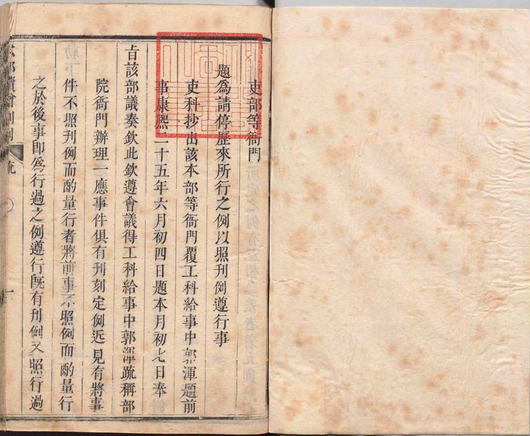 吏部等衙門
題為請停歷來所行之例以照刋例遵行事
吏科抄出該本部等衙門覆工科給事中郭渾題前
事康熙二十五年六月初四日題本月初七日奉
旨該部議奏欽此欽遵會議得工科給事中郭渾疏稱部
院衙門辦理一應事件俱有刋刻定例近見有將事
件不照刋例而酌量行者將前事不照例而酌量行
之於後事即為行過之例遵行旣有刋例又照行過